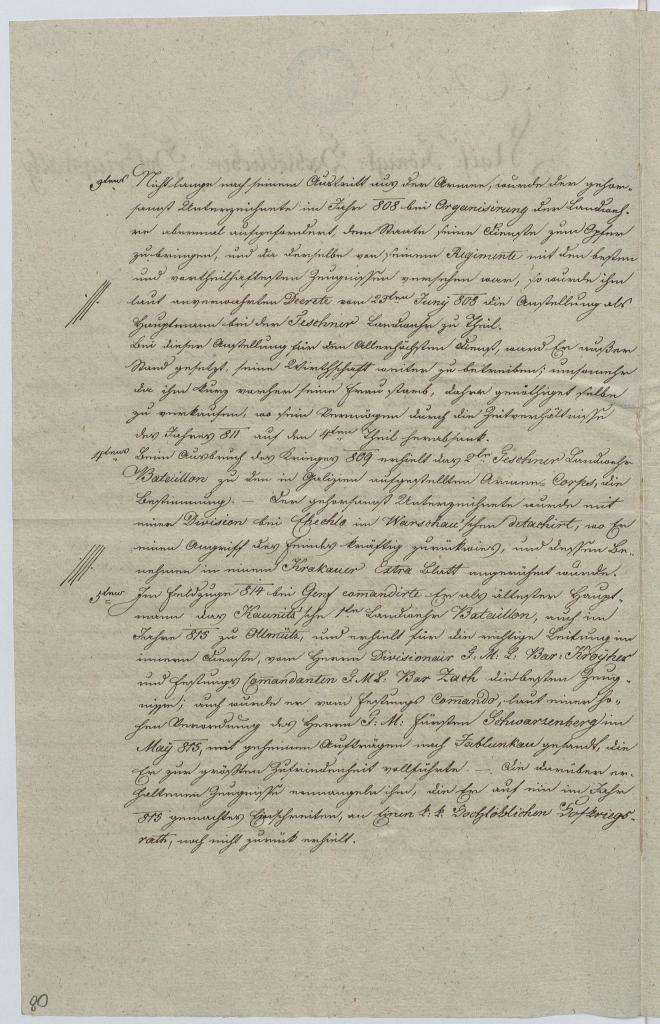 3tens Nicht lange nach seinem Austritt aus der Armee, wurde der gehor-
samst Unterzeichnete im Jahr 808 bei Organisirung der Landweh-
re abermal aufgefordert, dem Staate seine Dienste zum Opfer
zu bringen, und da derselbe von seinem Regimente mit den besten
und vortheilhaftesten Zeugnissen versehen war, so wurde ihm
laut anverwahrten Decrete vom 23ten Juny 808 die Anstellung als
Hauptmann bei der Teschner Landwehr zu Theil.
Bei dieser Anstellung für den Allerhöchsten Dienst, ward Er außer
Stand gesetzt, seine Wirthschaft weiter zu betreiben; umsomehr
da ihm kurz vorher seine Frau starb, daher genöthiget selbe
zu verkaufen, wo sein Vermögen durch die Zeitverhältnisse
des Jahres 811 auf den 4ten Theil herabsank.
4tens Beim Ausbruch des Krieges 809 erhielt das 2te Teschner Landwehr
Bataillon zu den in Galizien aufgestellten Armee-Corps, die
Bestimmung. — Der gehorsamst Unterzeichnete wurde mit
einer Division bei Chechlo im Warschau'schen detachirt, wo Er
einen Angriff des Feindes kräftig zurückwies, und dessen Be-
nehmen in einem Krakauer Extra Blatt angerühmt wurde.
5tens Im Feldzuge 814 bei Genf comandirte Er als ältester Haupt-
mann das Kaunitz'sche 1te Landwehr Bataillon, auch im
Jahre 815 zu Ollmütz, und erhielt für die richtige Leitung im
innern Dienste, vom Herrn Divisionair F. M. L. Bar: Kroyher
und Festungs Comandanten F. M. L. Bar Zach die besten Zeug-
nisse; auch wurde er vom Festungs Comando, laut einer ho-
hen Verordnung des Herrn F: M: Fürsten Schwarzenberg im
May 815, mit geheimen Aufträgen nach Jablunkau gesandt, die
Er zur größten Zufriedenheit vollführte. — Die darüber er-
haltenen Zeugnisse ermangeln ihm, die Er auf ein im Jahr
815 gemachtes Einschreiten, an Einen k. k. Hochlöblichen Hofkriegs-
rath, noch nicht zurück erhielt.
80